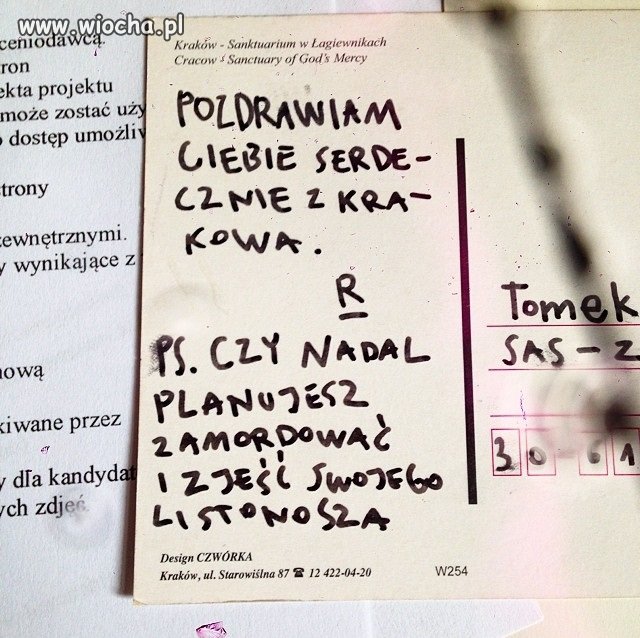 www.wiocha.pl
ceniodawcą.
tron
ekta projektu
może zostać uży
o dostęp umożliw
trony
zewnętrznymi.
y wynikające z
nową
kiwane przez
y dla kandydat
ych zdjęć
Kraków - Sanktuarium w Łagiewnikach
Cracow - Sanctuary of God's Mercy
POZDRAWIAM
CIEBIE SERDE-
CZNIE Z KRA-
KOWA.
R
PS. CZY NADAL
PLANUJESZ
ZAMORDOWAĆ
I ZJEŚĆ SWOJEGO
LISTONOSZA
Tomek
SAS-Z
30 61
Design CZWÓRKA
Kraków, ul. Starowiślna 87 ☎ 12 422-04-20
W254